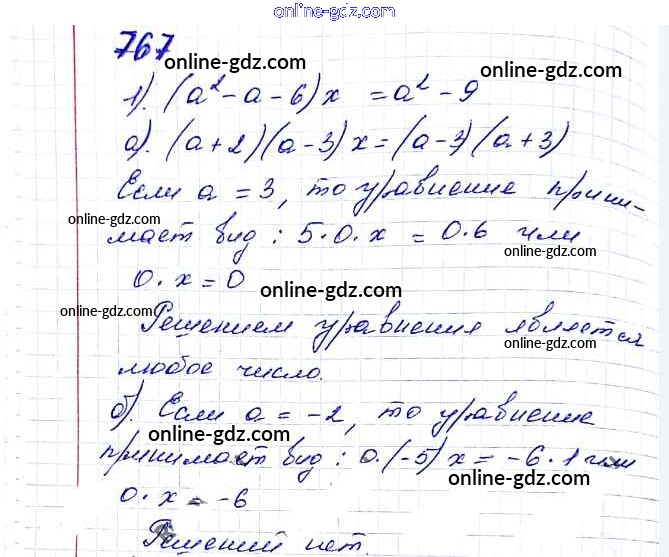 online-gdz.com
767
online-gdz.com
online-gdz.com
1). (a² - a - 6) x = a² - 9
online-gdz.com
а). (a + 2)(a - 3) x = (a - 3)(a + 3)
Если a = 3, то уравнение прини-
online-gdz.com
online-gdz.com
мает вид : 5·0·x = 0·6 или
0·x = 0
online-gdz.com
online-gdz.com
online-gdz.com
Решением уравнения является
любое число.
online-gdz.com
б). Если a = -2, то уравнение
online-gdz.com
принимает вид : 0·(-5) x = -6·1 или
online-gdz.com
0·x = -6
online-gdz.com
Решений нет.